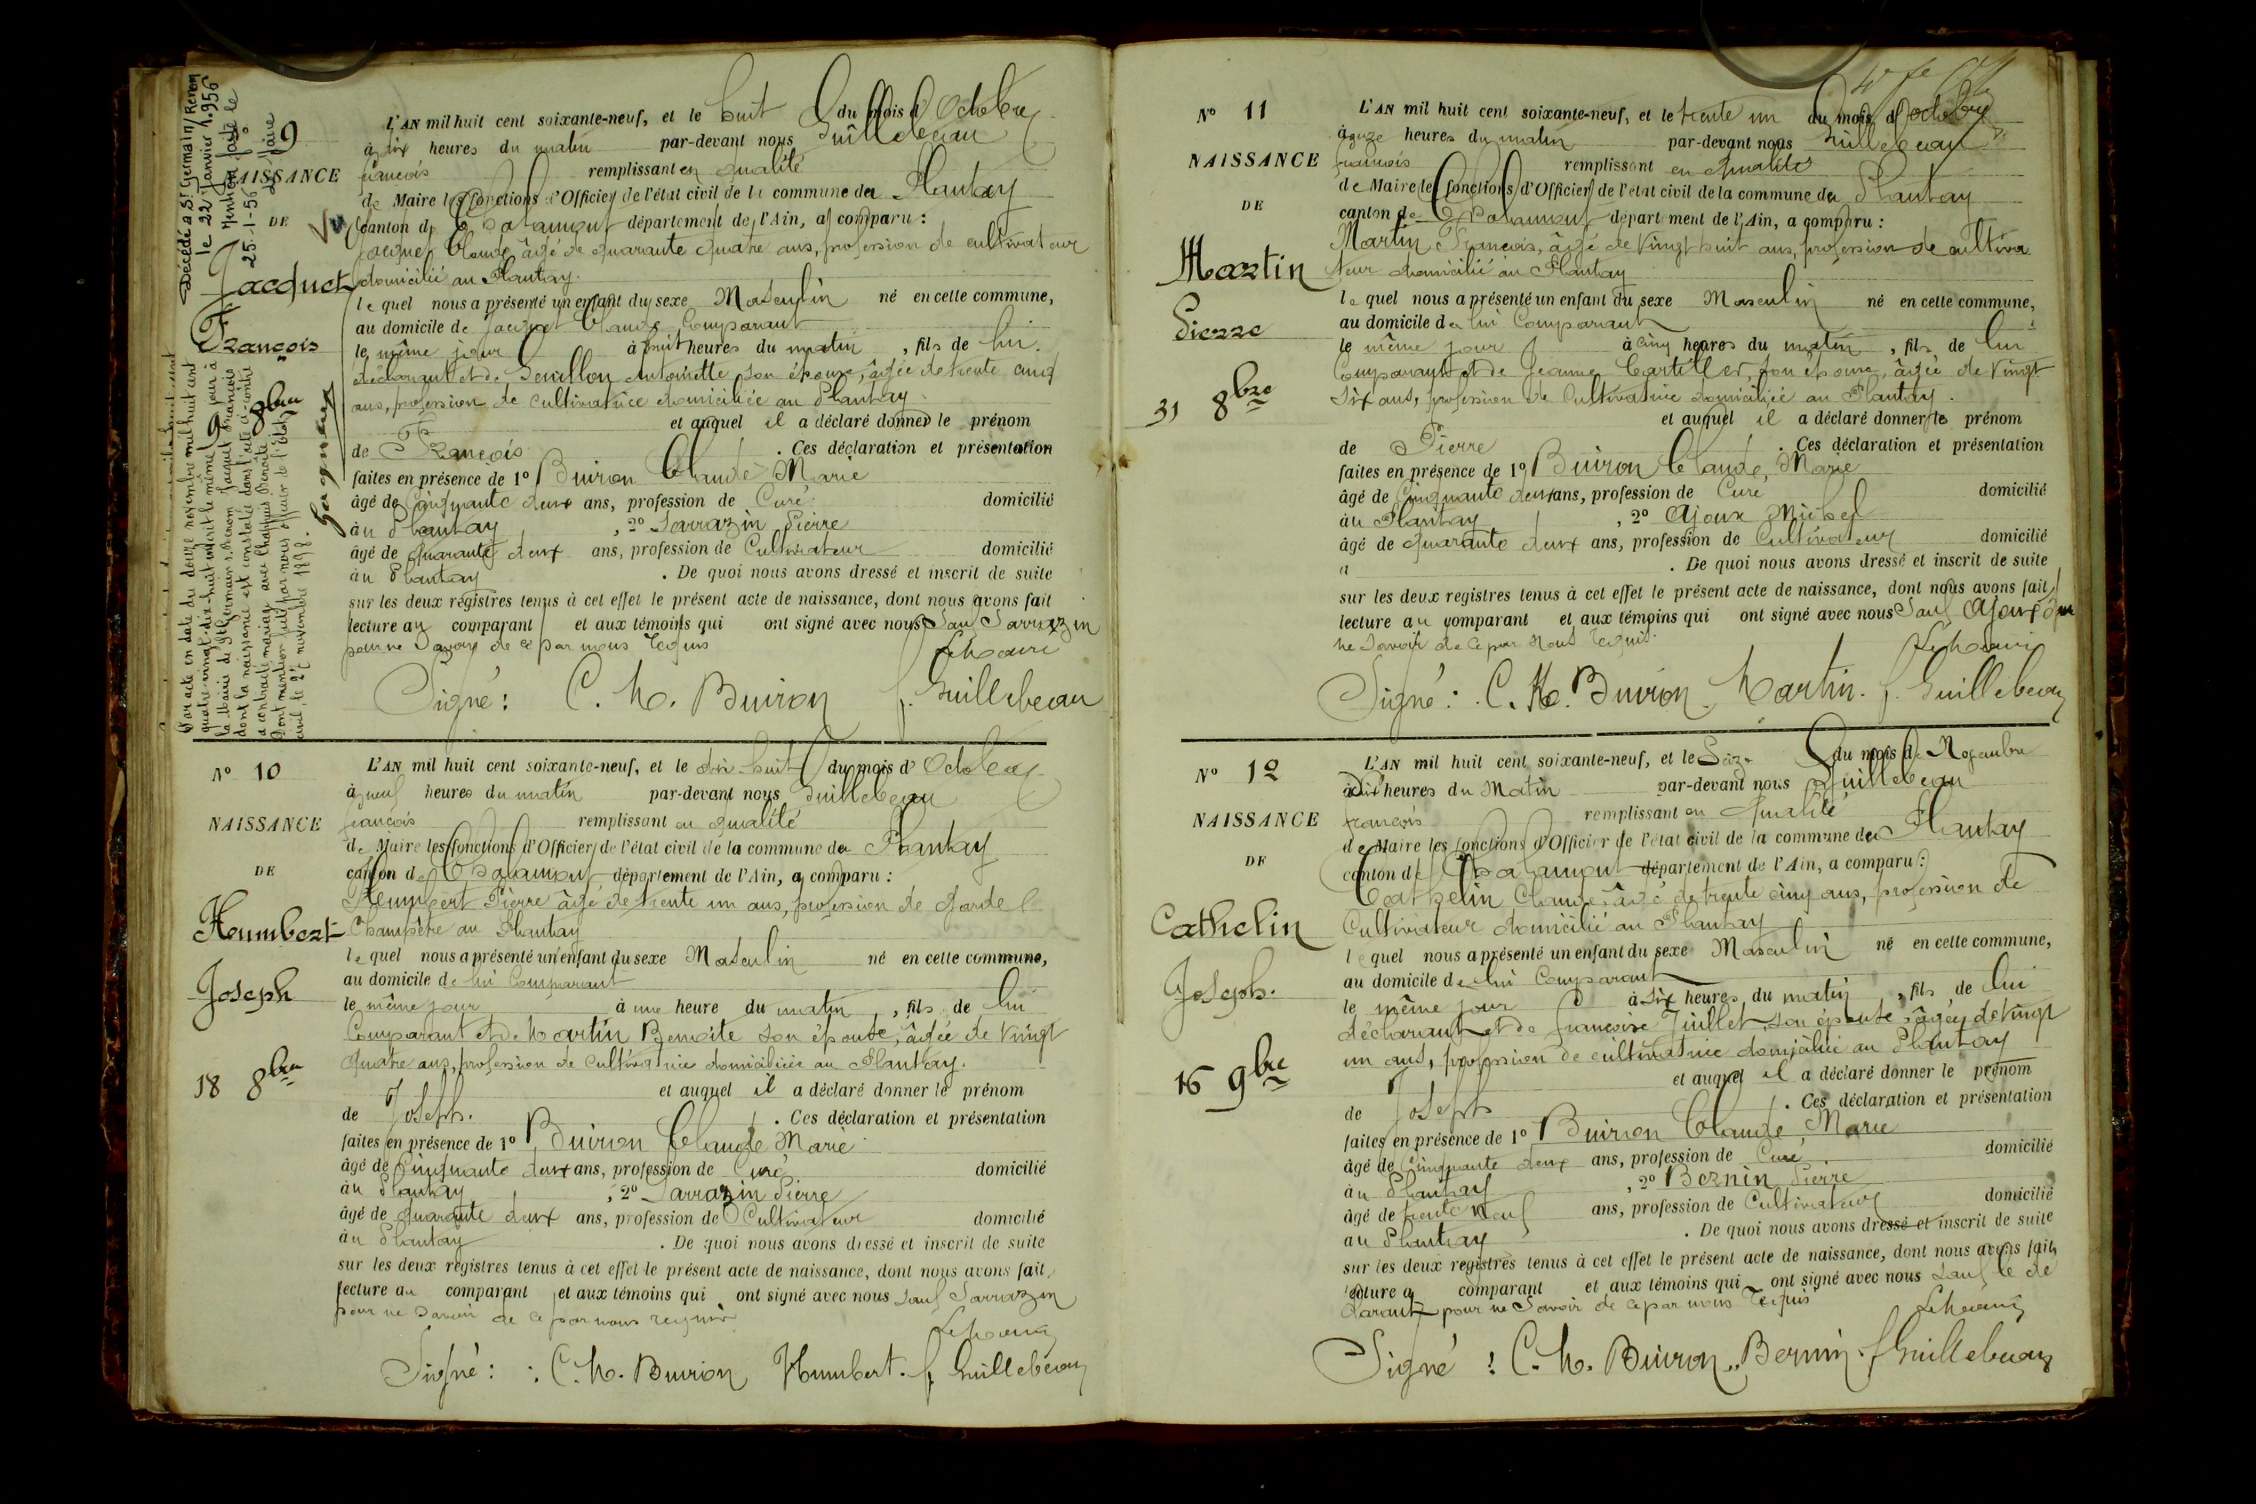 Décédé à St Germain/Renom
le 22 Janvier 1.956
Mention faite le
25-1-56 Le Maire
9
NAISSANCE
DE
Jacquet
François
8 8bre
Par acte en date du douze novembre mil huit cent
quatre-vingt-dix-huit inscrit le même jour à
la Mairie de St Germain s/Renom Jacquet François
dont la naissance est constatée dans l'acte ci-contre
a contracté mariage avec Chappuis Pierrette
Dont mention faite par nous officier de l'état
civil, le novembre 1898.
L'AN mil huit cent soixante-neuf, et le huit du mois d'Octobre
à dix heures du matin par-devant nous Guillebeau
françois remplissant en qualité
de Maire les fonctions d'Officier de l'état civil de la commune du Plantay
canton de Chalamont département de l'Ain, a comparu :
Jacquet Claude, âgé de quarante quatre ans, profession de cultivateur
domicilié au Plantay.
le quel nous a présenté un enfant du sexe Masculin né en cette commune,
au domicile de Jacquet Claude Comparant
le même jour à huit heures du matin, fils de lui
déclarant et de Antoinette son épouse, âgée de trente cinq
ans, profession de cultivatrice domiciliée au Plantay.
et auquel il a déclaré donner le prénom
de François. Ces déclaration et présentation
faites en présence de 1° Buiron Claude Marie
âgé de Cinquante deux ans, profession de Curé domicilié
au Plantay, 2° Sarrazin Pierre
âgé de quarante deux ans, profession de Cultivateur domicilié
au Plantay. De quoi nous avons dressé et inscrit de suite
sur les deux registres tenus à cet effet le présent acte de naissance, dont nous avons fait
lecture au comparant et aux témoins qui ont signé avec nous Sauf Sarrazin
pour ne Savoir de ce par nous requis Le Maire
Signé : C. M. Buiron f. Guillebeau
N° 10
NAISSANCE
DE
Humbert
Joseph
18 8bre
L'AN mil huit cent soixante-neuf, et le dix-huit du mois d'Octobre
à neuf heures du matin par-devant nous Guillebeau
françois remplissant en qualité
de Maire les fonctions d'Officier de l'état civil de la commune du Plantay
canton de Chalamont département de l'Ain, a comparu :
Humbert Pierre âgé de trente un ans, profession de Garde
Champêtre au Plantay
le quel nous a présenté un enfant du sexe Masculin né en cette commune,
au domicile de lui Comparant
le même jour à une heure du matin, fils de lui
Comparant et de Martin Benoite son épouse, âgée de Vingt
quatre ans, profession de Cultivatrice domiciliée au Plantay.
et auquel il a déclaré donner le prénom
de Joseph. Ces déclaration et présentation
faites en présence de 1° Buiron Claude Marie
âgé de Cinquante deux ans, profession de Curé domicilié
au Plantay, 2° Sarrazin Pierre
âgé de quarante deux ans, profession de Cultivateur domicilié
au Plantay. De quoi nous avons dressé et inscrit de suite
sur les deux registres tenus à cet effet le présent acte de naissance, dont nous avons fait
lecture au comparant et aux témoins qui ont signé avec nous Sauf Sarrazin
pour ne Savoir de ce par nous requis
Le Maire
Signé : C. M. Buiron Humbert. f. Guillebeau
N° 11
NAISSANCE
DE
Martin
Pierre
31 8bre
L'AN mil huit cent soixante-neuf, et le trente un du mois d'octobre
à onze heures du matin par-devant nous Guillebeau
françois remplissant en qualité
de Maire les fonctions d'Officier de l'état civil de la commune du Plantay
canton de Chalamont département de l'Ain, a comparu :
Martin François, âgé de Vingt huit ans, profession de cultiva
teur domicilié au Plantay
le quel nous a présenté un enfant du sexe Masculin né en cette commune,
au domicile de lui Comparant
le même jour à cinq heures du matin, fils de lui
Comparant et de Jeanne son épouse, âgée de Vingt
Six ans, profession de Cultivatrice domiciliée au Plantay.
et auquel il a déclaré donner le prénom
de Pierre. Ces déclaration et présentation
faites en présence de 1° Buiron Claude, Marie
âgé de Cinquante deux ans, profession de Curé domicilié
au Plantay, 2° Ajoux Michel
âgé de quarante deux ans, profession de Cultivateur domicilié
à. De quoi nous avons dressé et inscrit de suite
sur les deux registres tenus à cet effet le présent acte de naissance, dont nous avons fait
lecture au comparant et aux témoins qui ont signé avec nous Sauf Ajoux pour
ne Savoir de ce par nous requis. Le Maire
Signé : C. M. Buiron Martin. f. Guillebeau
N° 12
NAISSANCE
DE
Cathelin
Joseph.
16 9bre
L'AN mil huit cent soixante-neuf, et le Seize du mois de Novembre
à dix heures du Matin par-devant nous Guillebeau
françois remplissant en qualité
de Maire les fonctions d'Officier de l'état civil de la commune du Plantay
canton de Chalamont département de l'Ain, a comparu :
Cathelin Claude, âgé de trente cinq ans, profession de
Cultivateur domicilié au Plantay
le quel nous a présenté un enfant du sexe Masculin né en cette commune,
au domicile de lui Comparant
le même jour à six heures du matin, fils de lui
déclarant et de françoise Juillet, son épouse, âgée de vingt
un ans, profession de cultivatrice domiciliée au Plantay
et auquel il a déclaré donner le prénom
de Joseph. Ces déclaration et présentation
faites en présence de 1° Buiron Claude Marie
âgé de Cinquante deux ans, profession de Curé domicilié
au Plantay, 2° Bernin Pierre
âgé de trente Neuf ans, profession de Cultivateur domicilié
au Plantay. De quoi nous avons dressé et inscrit de suite
sur les deux registres tenus à cet effet le présent acte de naissance, dont nous avons fait
lecture au comparant et aux témoins qui ont signé avec nous Sauf le dé
clarant pour ne Savoir de ce par nous requis Le Maire
Signé : C. M. Buiron, Bernin. f Guillebeau